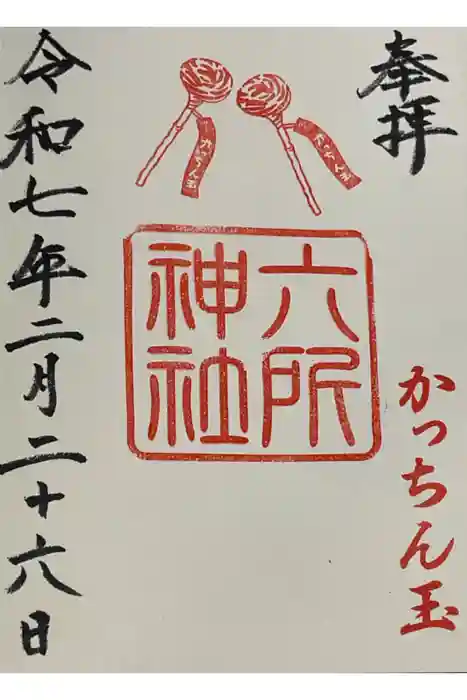 奉拝
かっちん玉
かっちん玉
かっちん玉
六所
神社
令和七年二月二十六日